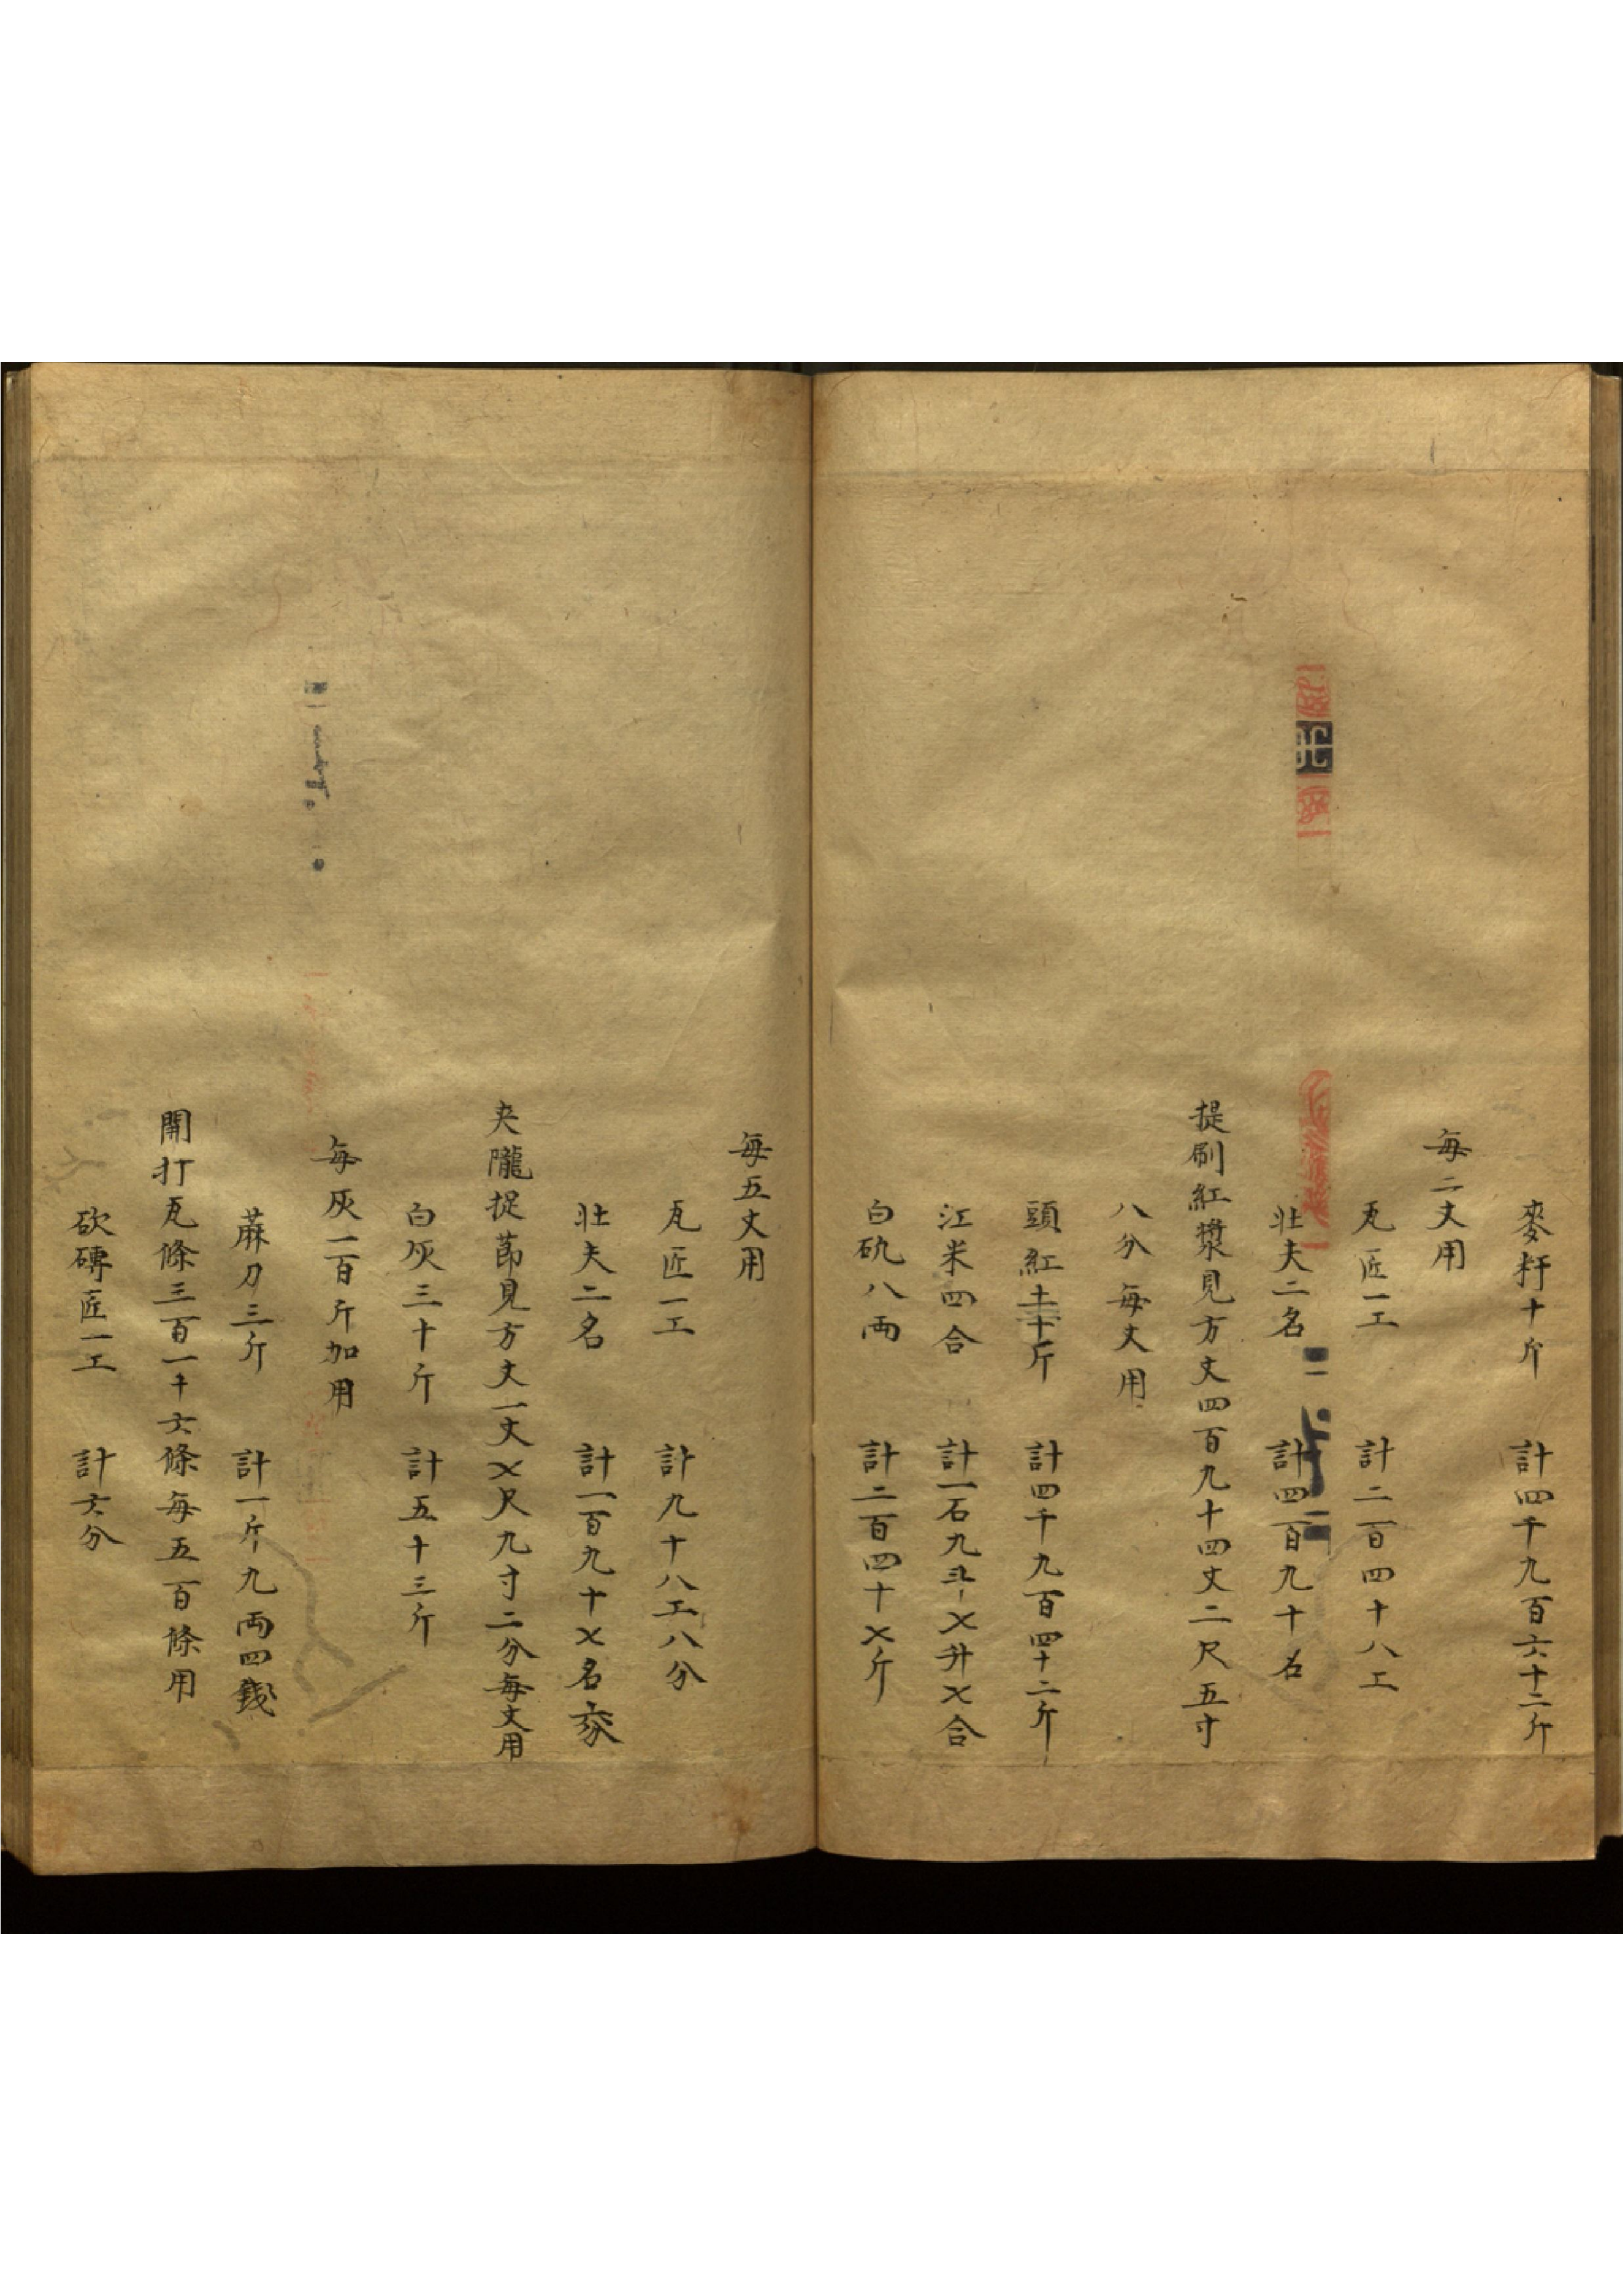 麥䊩十斤　計四千九百六十二斤
每二丈用
瓦匠一工　計二百四十八工
壯夫二名　計四百九十名
提刷紅漿見方丈四百九十四丈二尺五寸
八分每丈用
頭紅土十斤　計四千九百四十二斤
江米四合　計一石九斗乂升乂合
白矾八両　計二百四十乂斤
每五丈用
瓦匠一工　計九十八工八分
壯夫二名　計一百九十乂名六分
夹隴捉莭見方丈一丈乂尺九寸二分每丈用
白灰三十斤　計五十三斤
每灰一百斤加用
蔴刀三斤　計一斤九両四錢
開打瓦條三百一十六條每五百條用
砍磚匠一工　計六分